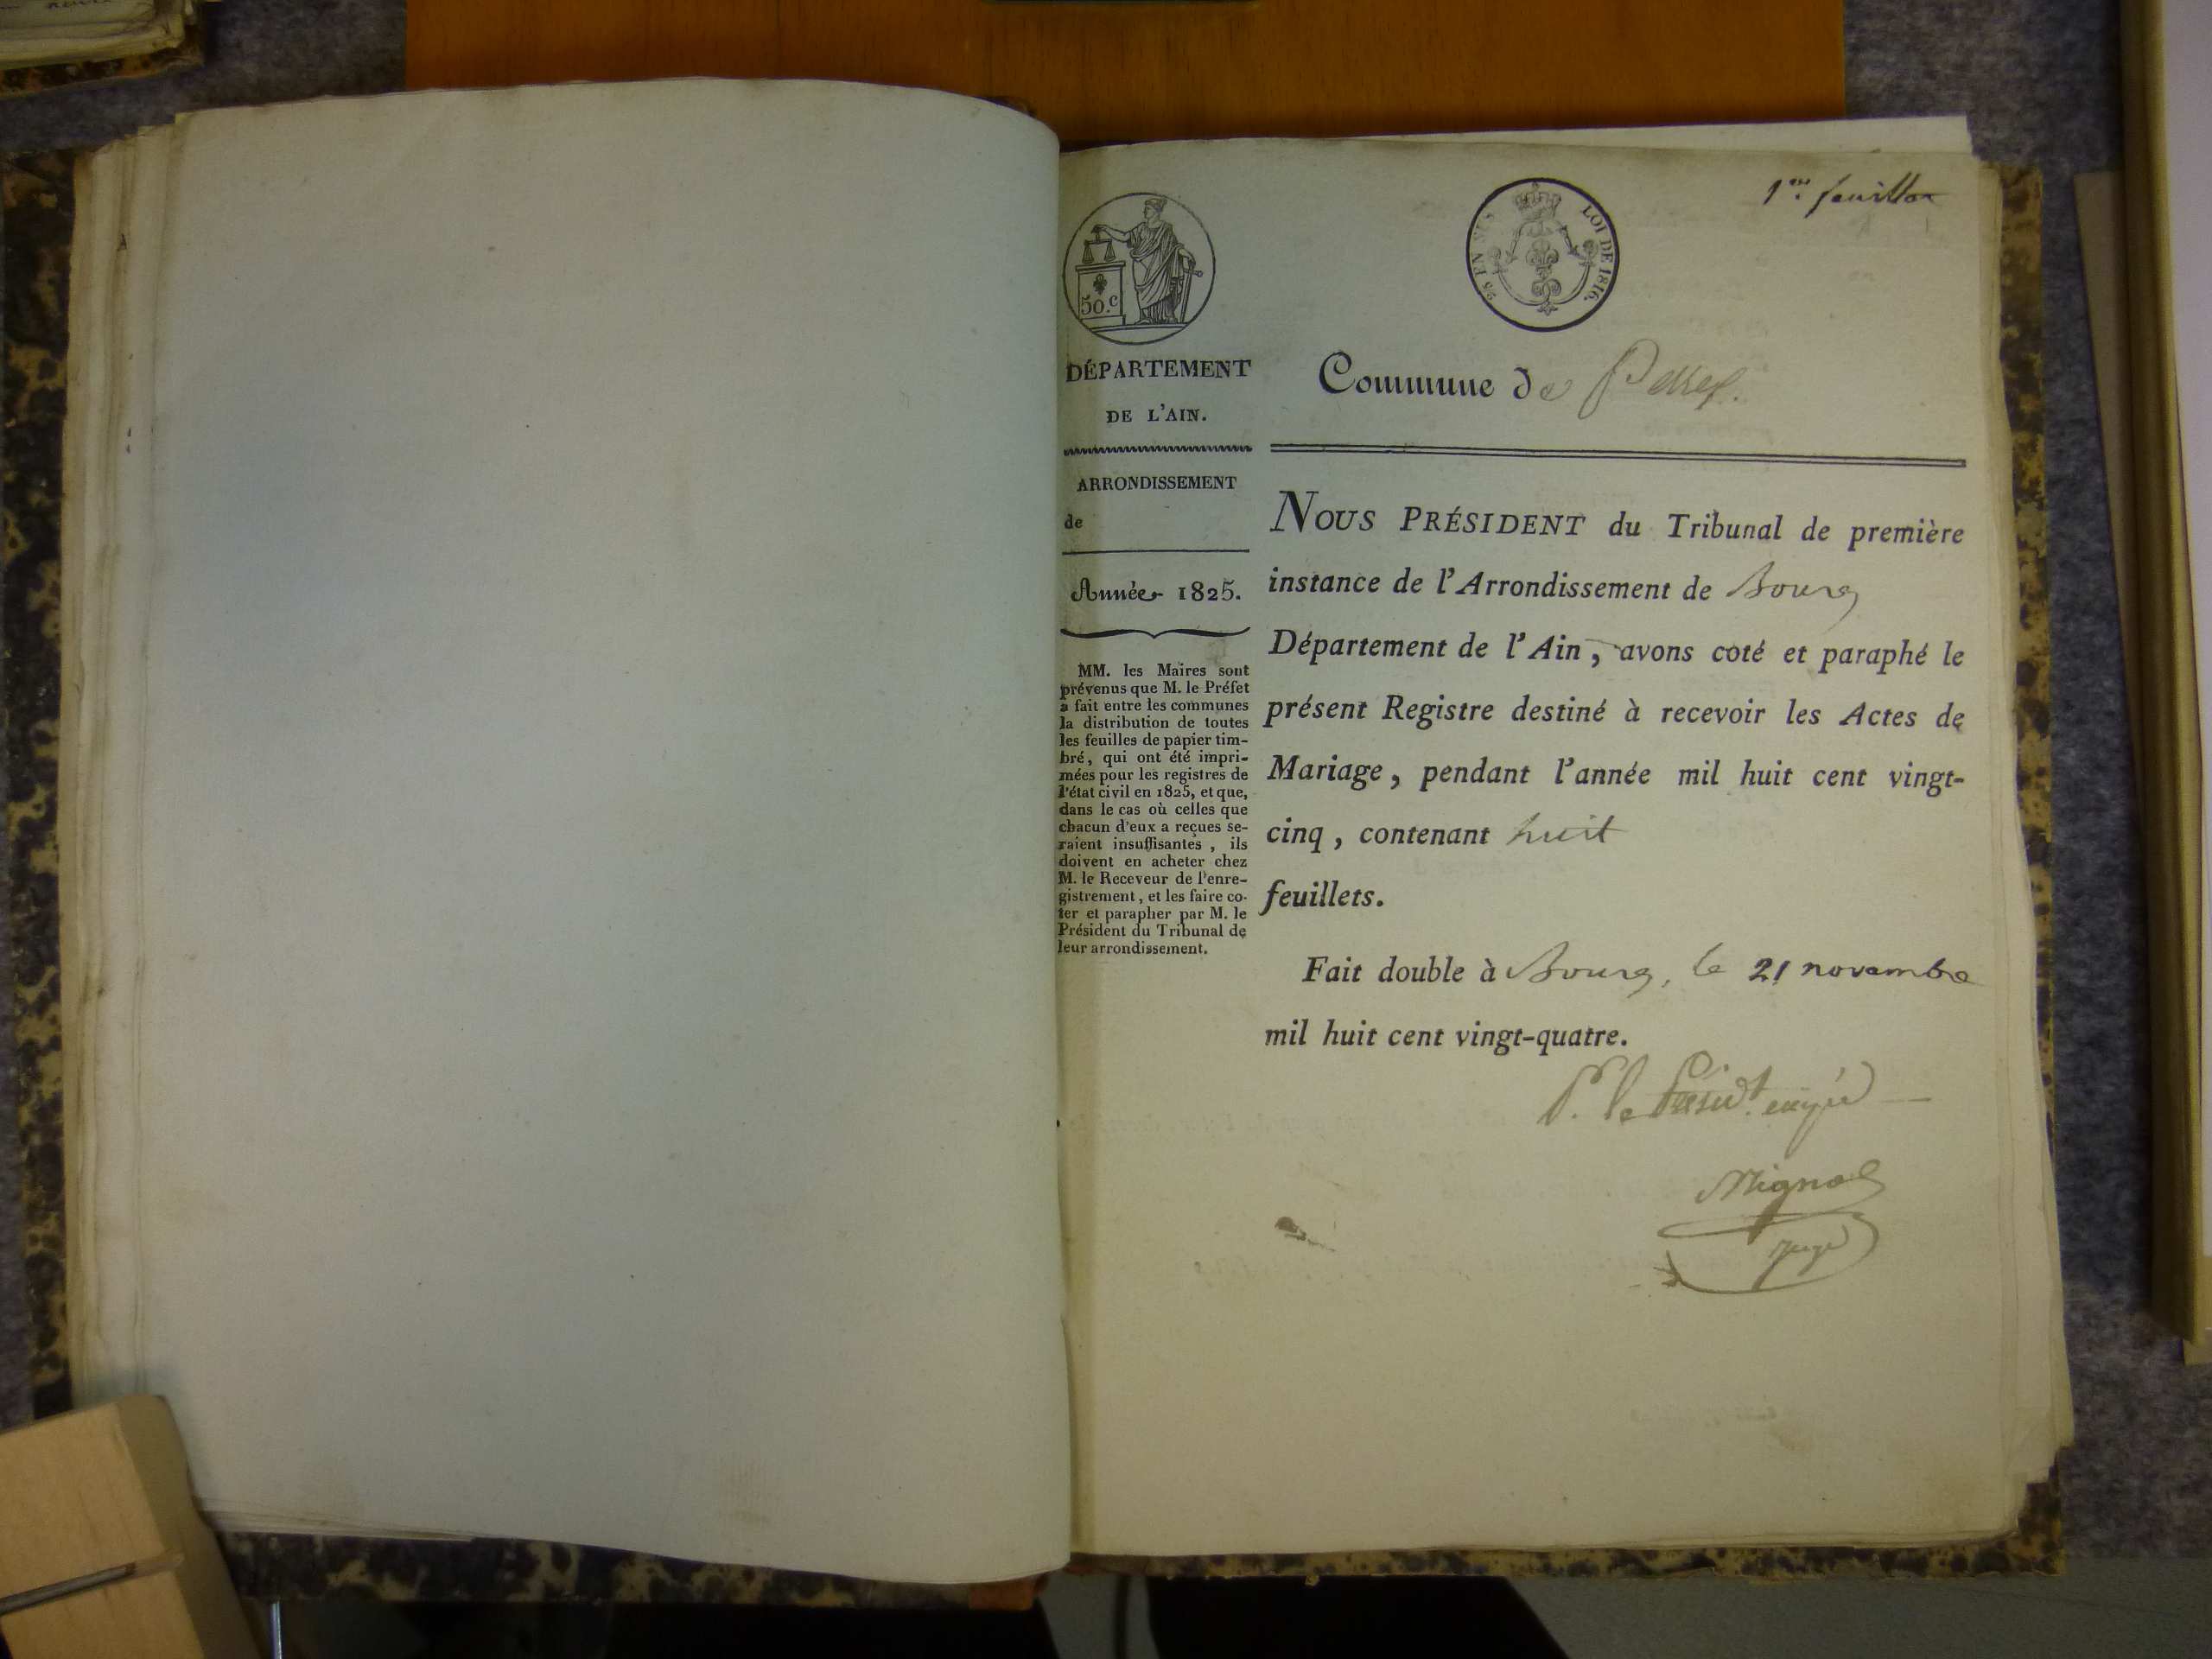 1er. feuillet
50.c
25 EN SUS
LOI DE 1816.
DÉPARTEMENT
DE L'AIN.
ARRONDISSEMENT
de
Année 1825.
MM. les Maires sont
prévenus que M. le Préfet
a fait entre les communes
la distribution de toutes
les feuilles de papier tim-
bré, qui ont été impri-
mées pour les registres de
l'état civil en 1825, et que,
dans le cas où celles que
chacun d'eux a reçues se-
raient insuffisantes, ils
doivent en acheter chez
M. le Receveur de l'enre-
gistrement, et les faire co-
ter et parapher par M. le
Président du Tribunal de
leur arrondissement.
Commune de Perrex.
NOUS PRÉSIDENT du Tribunal de première
instance de l'Arrondissement de Bourg
Département de l'Ain, avons coté et paraphé le
présent Registre destiné à recevoir les Actes de
Mariage, pendant l'année mil huit cent vingt-
cinq, contenant huit
feuillets.
Fait double à Bourg, le 21 novembre
mil huit cent vingt-quatre.
P. le Présidt. empé
juge